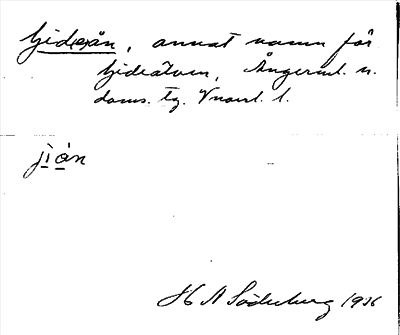 Gid(e)ån, annat namn för
Gideälven, Ångerml. n.
doms. tg. Vnorrl. l.
ji ån
H A Söderberg 1936